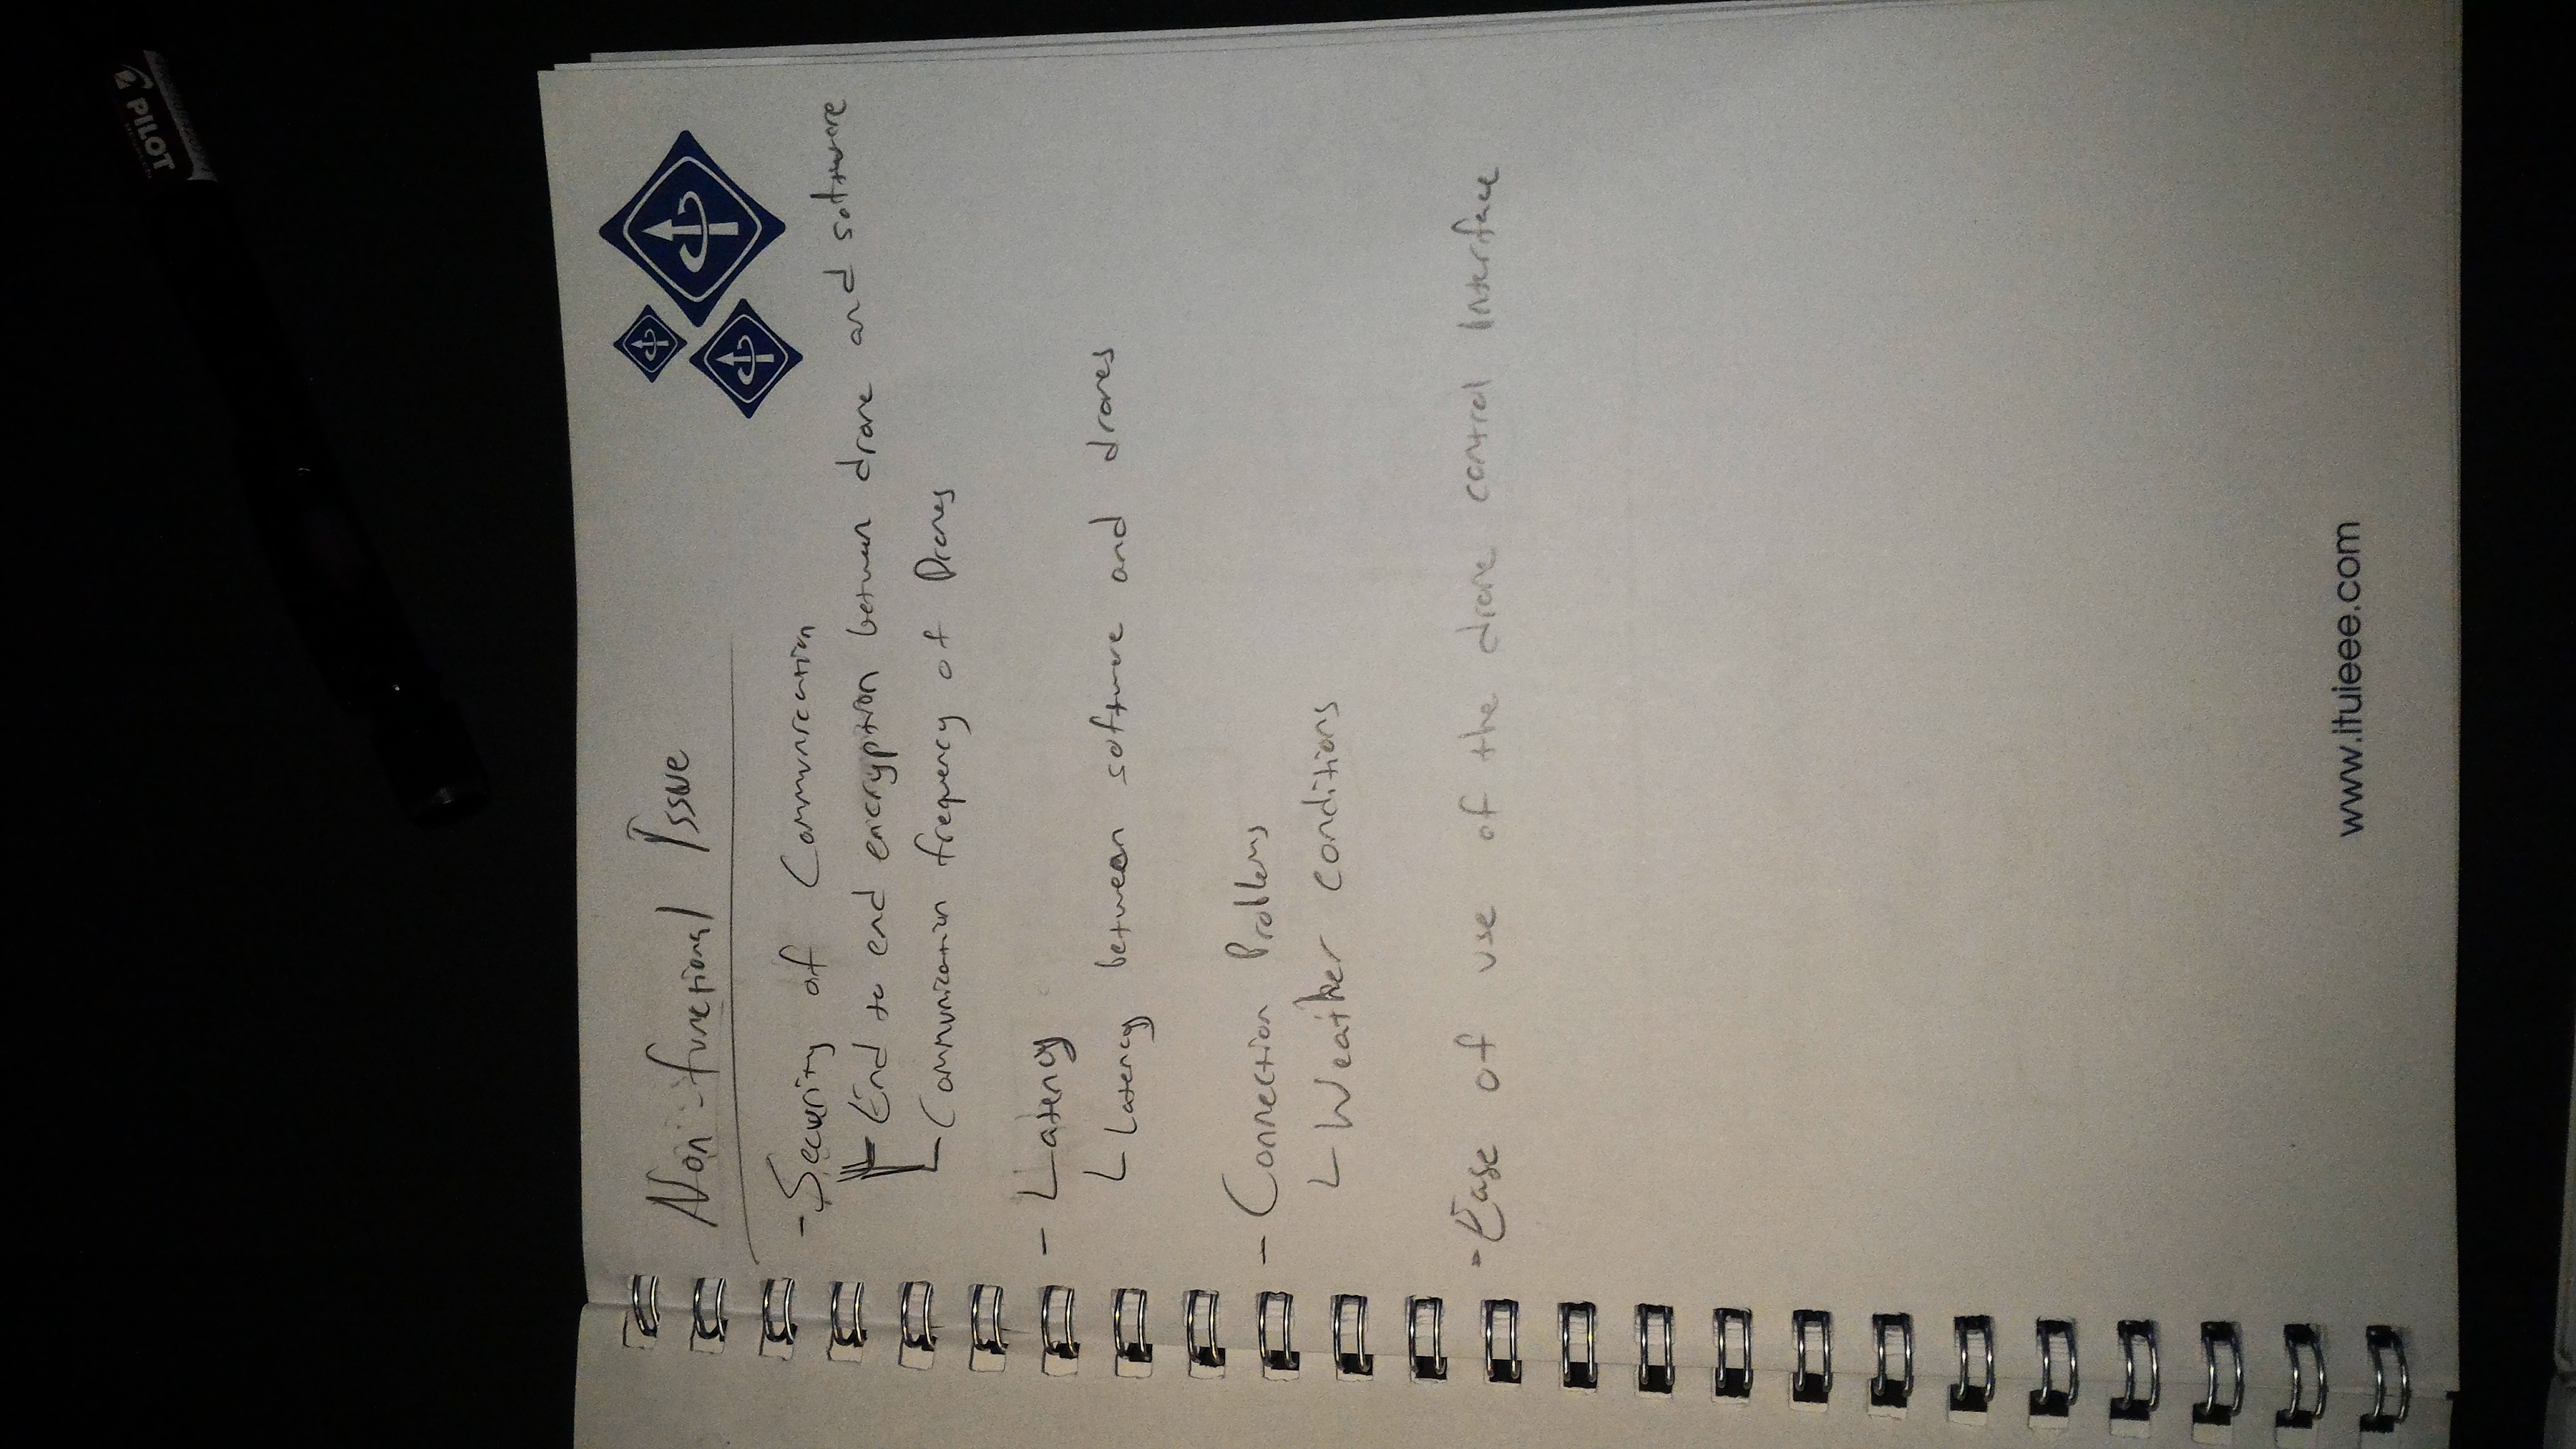 PILOT
Non-functional Issue
- Security of Communication
End to end encryption between drone and software
Communication frequency of Drones
- Latency
Latency between software and drones
- Connection Problems
Weather conditions
- Ease of use of the drone control Interface
www.ituieee.com